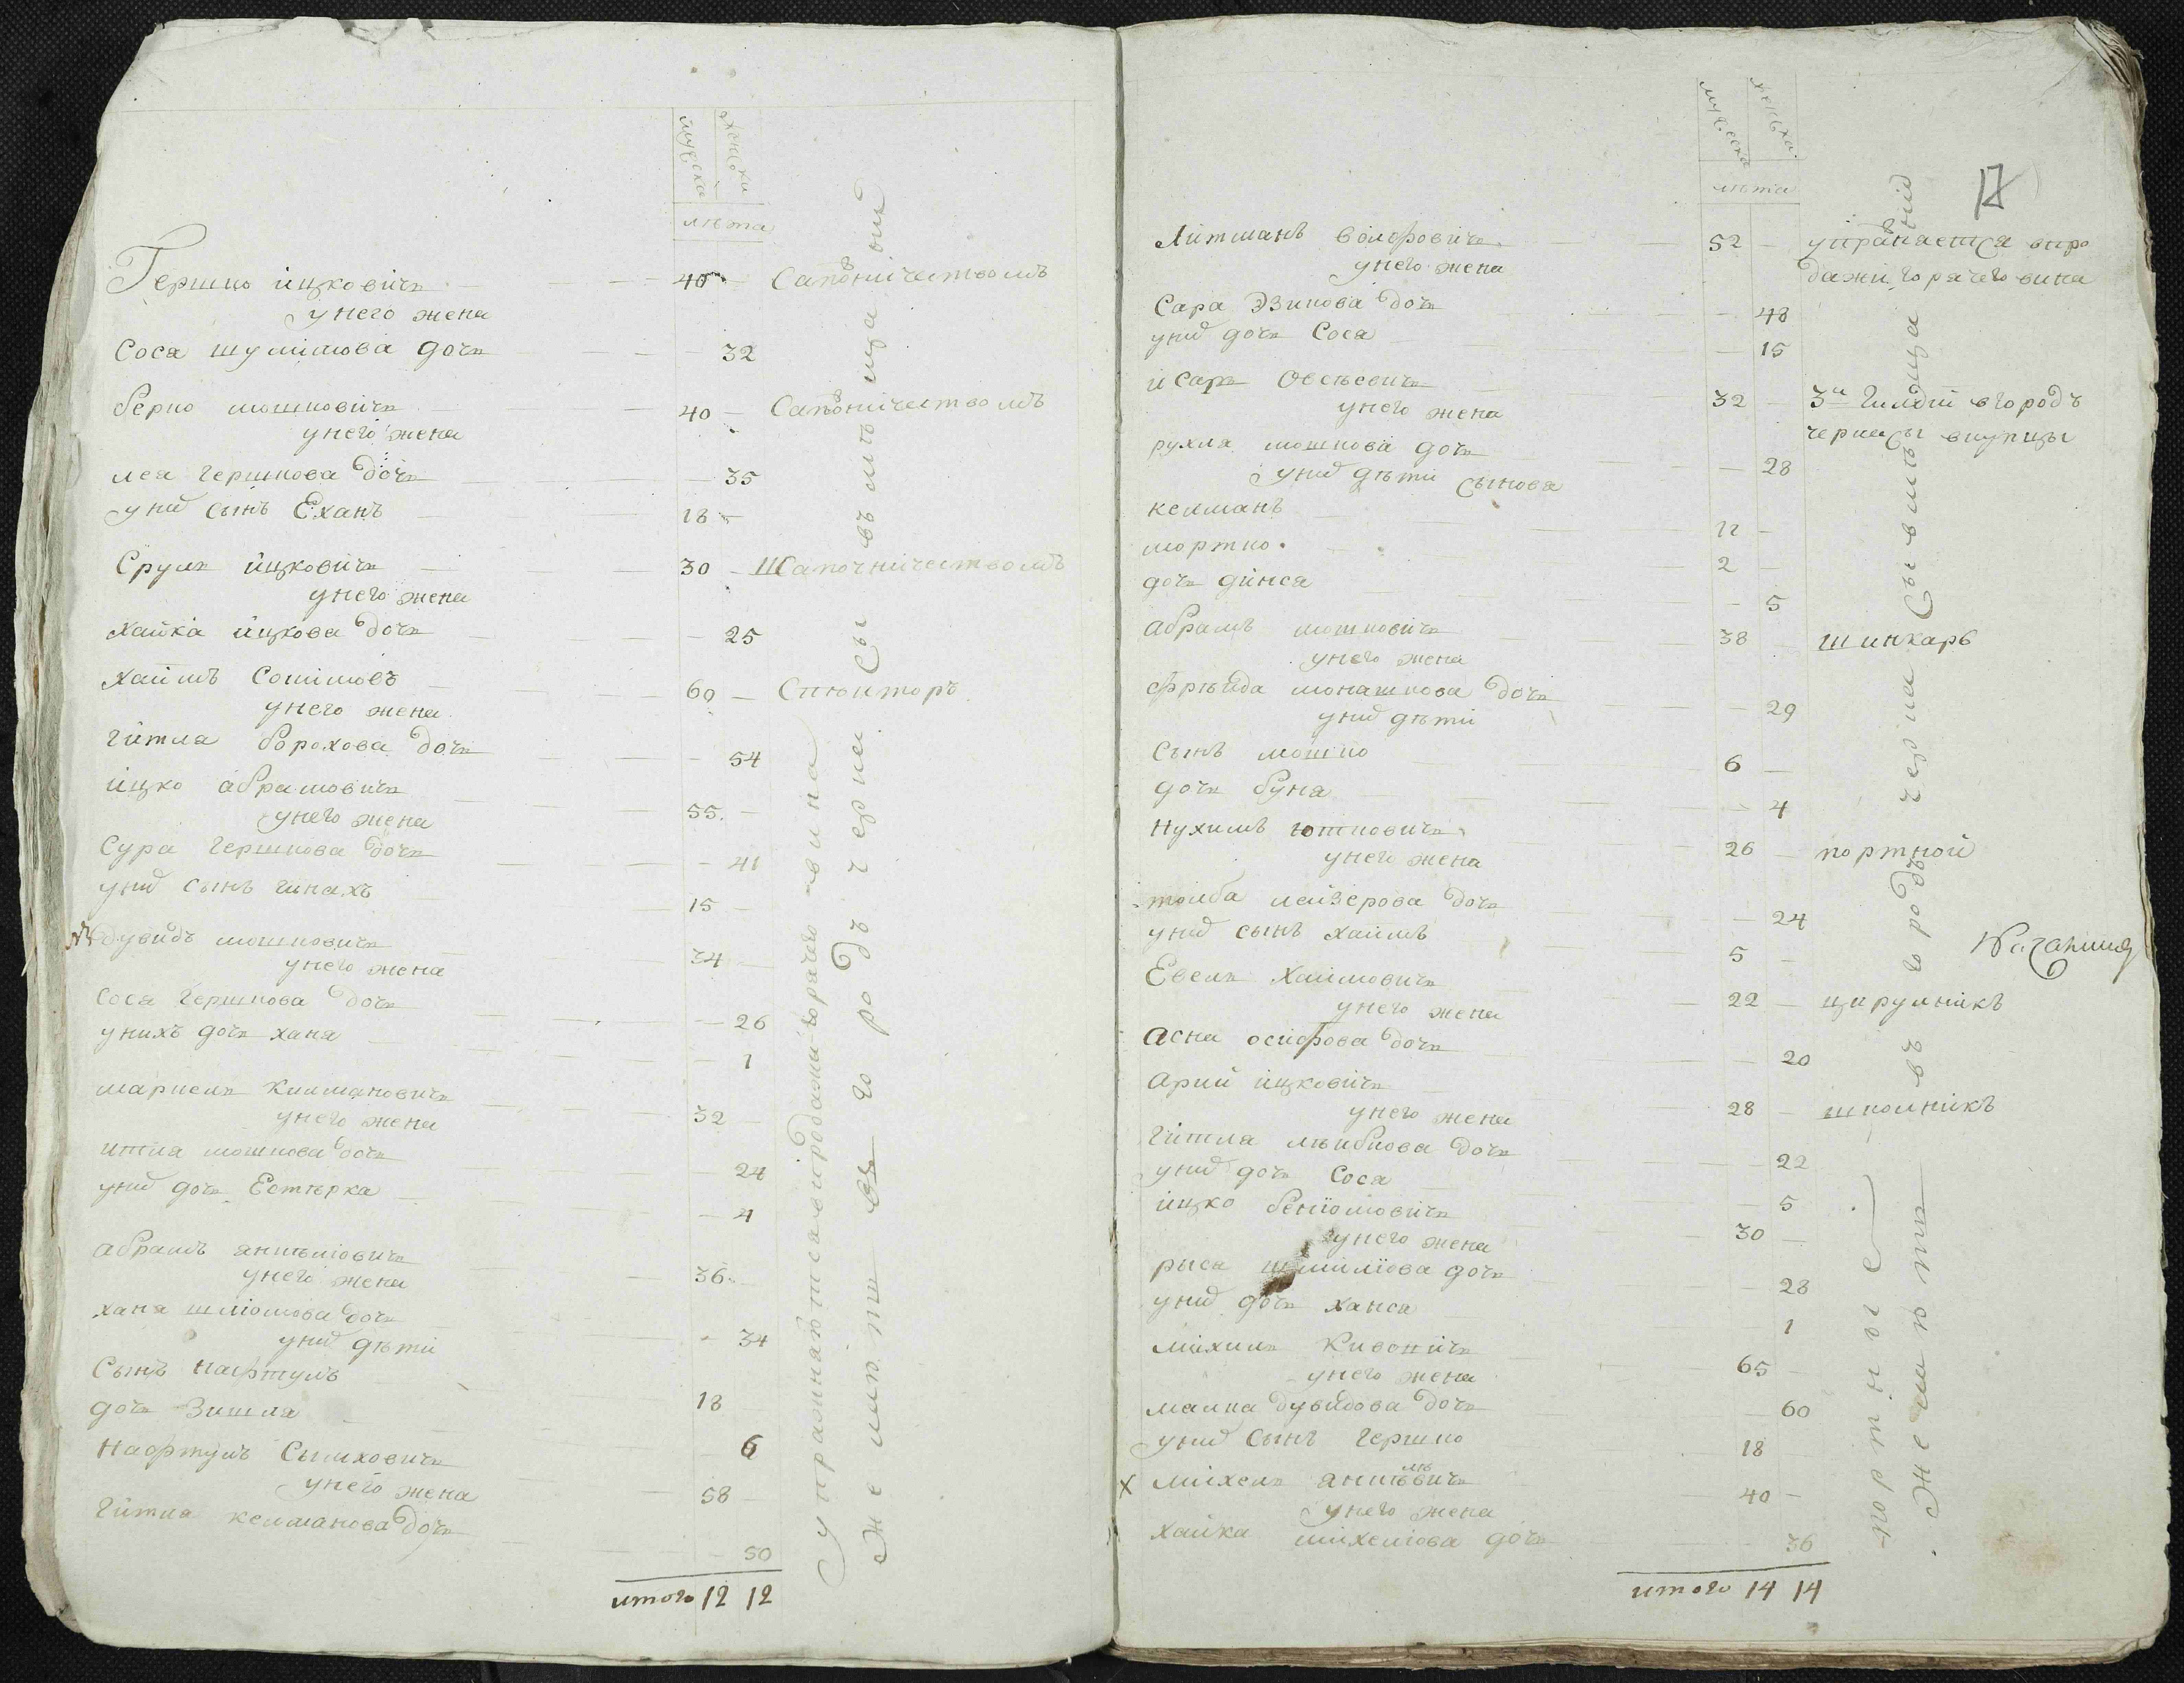 мужеска женска
лѣта
Гершко ицковичъ 40 Сапожничествомъ
унего жена
Соса шулимова дочь 32
берко мошковичъ 40 Сапожничествомъ
унего жена
лея гершкова дочь 35
унихъ сынъ Еханъ 18
Сруль ицковичъ 30 Шапочничествомъ
унего жена
хайка ицкова дочь 25
хаимъ 60
унего жена
гитля борохова дочь 54
ицко абрамовичъ 55
унего жена
Сура гершкова дочь 41
унихъ сынъ 15
дувидъ мошковичъ 34
унего жена
соса гершкова дочь 26
унихъ дочь хана 1
маркель Килмановичъ 32
унего жена
итля мошкова дочь 24
унихъ дочь Естерка 4
абрамъ аншелювичъ 36
унего жена
хана шлюмова дочь 34
унихъ дѣти
Сынъ нафтулъ 18
дочь Зишля 6
нафтулъ Симховичъ 58
унего жена
гитля келманова дочь 50
итого 12 12
упражняются впродажи горячего вина
Жительст въ городѣ черкасы въ мѣщанств
17
мужеска женска
лѣта
Литманъ волфовичъ 52 упражняется впро
унего жена дажи горячего вина
Сара Эзикова дочь 48
унихъ дочь Соса 15
исаръ Овсѣевичъ 32 3й гилдіи в городѣ
унего жена черкасы вкупцы
рухля мошкова дочь 28
унихъ дѣти сыновья
келманъ 11
мортко 2
дочь динся 5
абрамъ мошковичъ 38 шинкарь
унего жена
фрѣйда монашкова дочь 29
унихъ дѣти
сынъ мошко 6
дочь буня 4
нухимъ ютковичъ 26 портной
унего жена
толба лейзерова дочь 24
унихъ сынъ хаимъ 5
Евель хаимовичъ 22 цирулникъ
унего жена
асна осифова дочь 20
арий ицковичъ 28 школникъ
унего жена
гитля лѣибкова дочь 22
унихъ дочь Сося 5
ицко бенюмовичъ 30
унего жена
рыся дочь 28
унихъ дочь ханся 1
михиль Кивовичъ 65
унего жена
малка дувидова дочь 60
унихъ сынъ гершко 18
х михель аншѣлевичъ 40
унего жена
хайка михелюва дочь 36
итого 14 14
портные
въ городѣ черкасы вмѣщанств